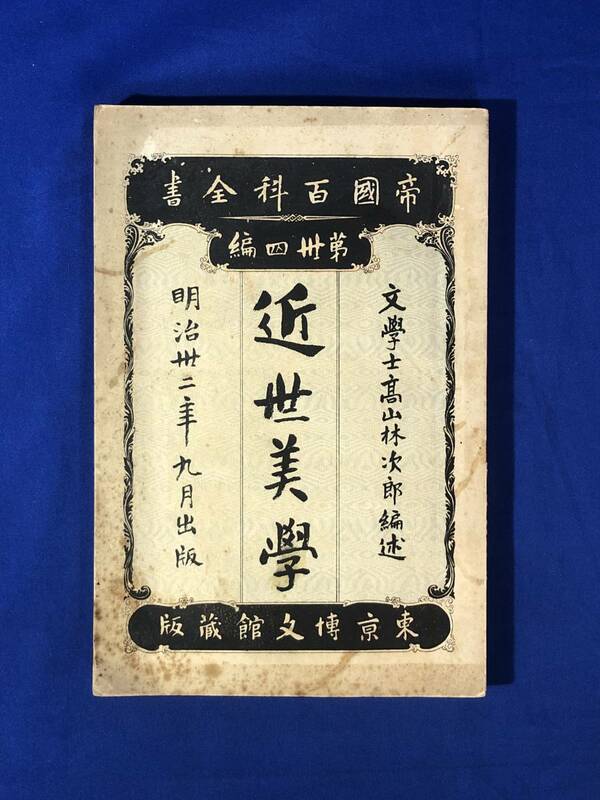 帝國百科全書
第卅四編
文學士高山林次郎編述
近世美學
明治卅二年九月出版
東京博文館蔵版